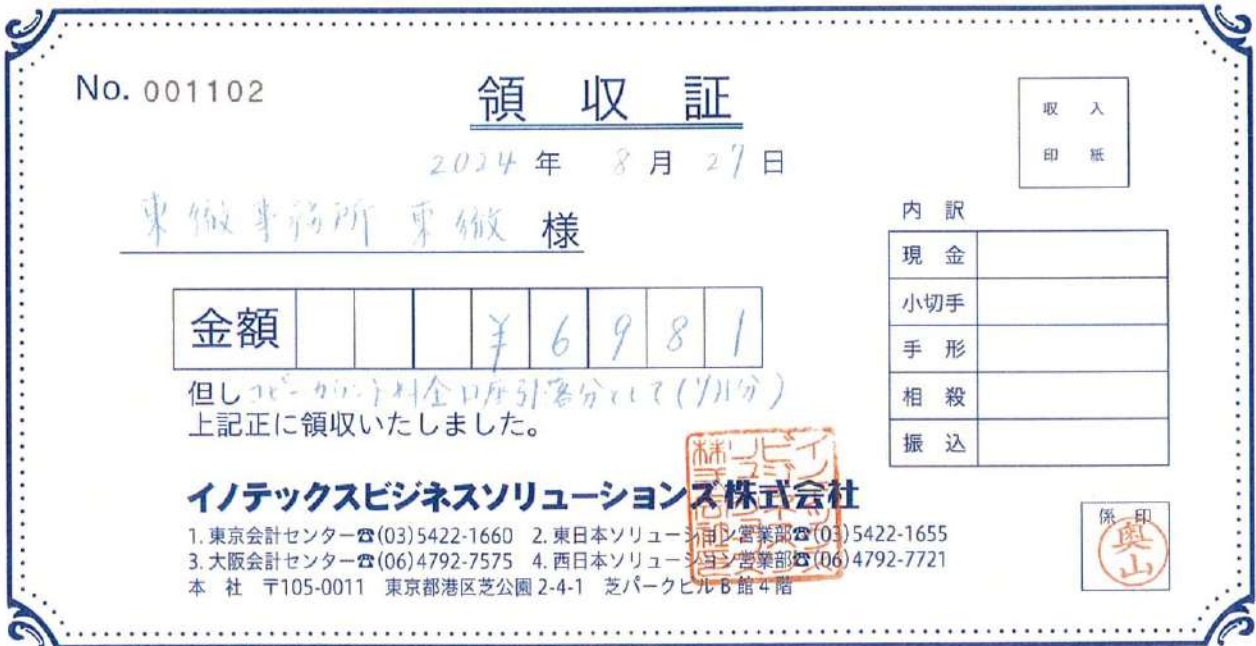 No. 001102
領収証
収入
印紙
2024年 8月27日
東徹事務所 東徹 様
内訳
現金
小切手
手形
相殺
振込
金額 ¥6981
但し コピーカウント料金口座引落分として(7月分)
上記正に領収いたしました。
イノテックスビジネスソリューションズ株式会社
1. 東京会計センター☎(03)5422-1660 2. 東日本ソリューション営業部☎(03)5422-1655
3. 大阪会計センター☎(06)4792-7575 4. 西日本ソリューション営業部☎(06)4792-7721
本社 〒105-0011 東京都港区芝公園2-4-1 芝パークビルB館4階
係印
奥山